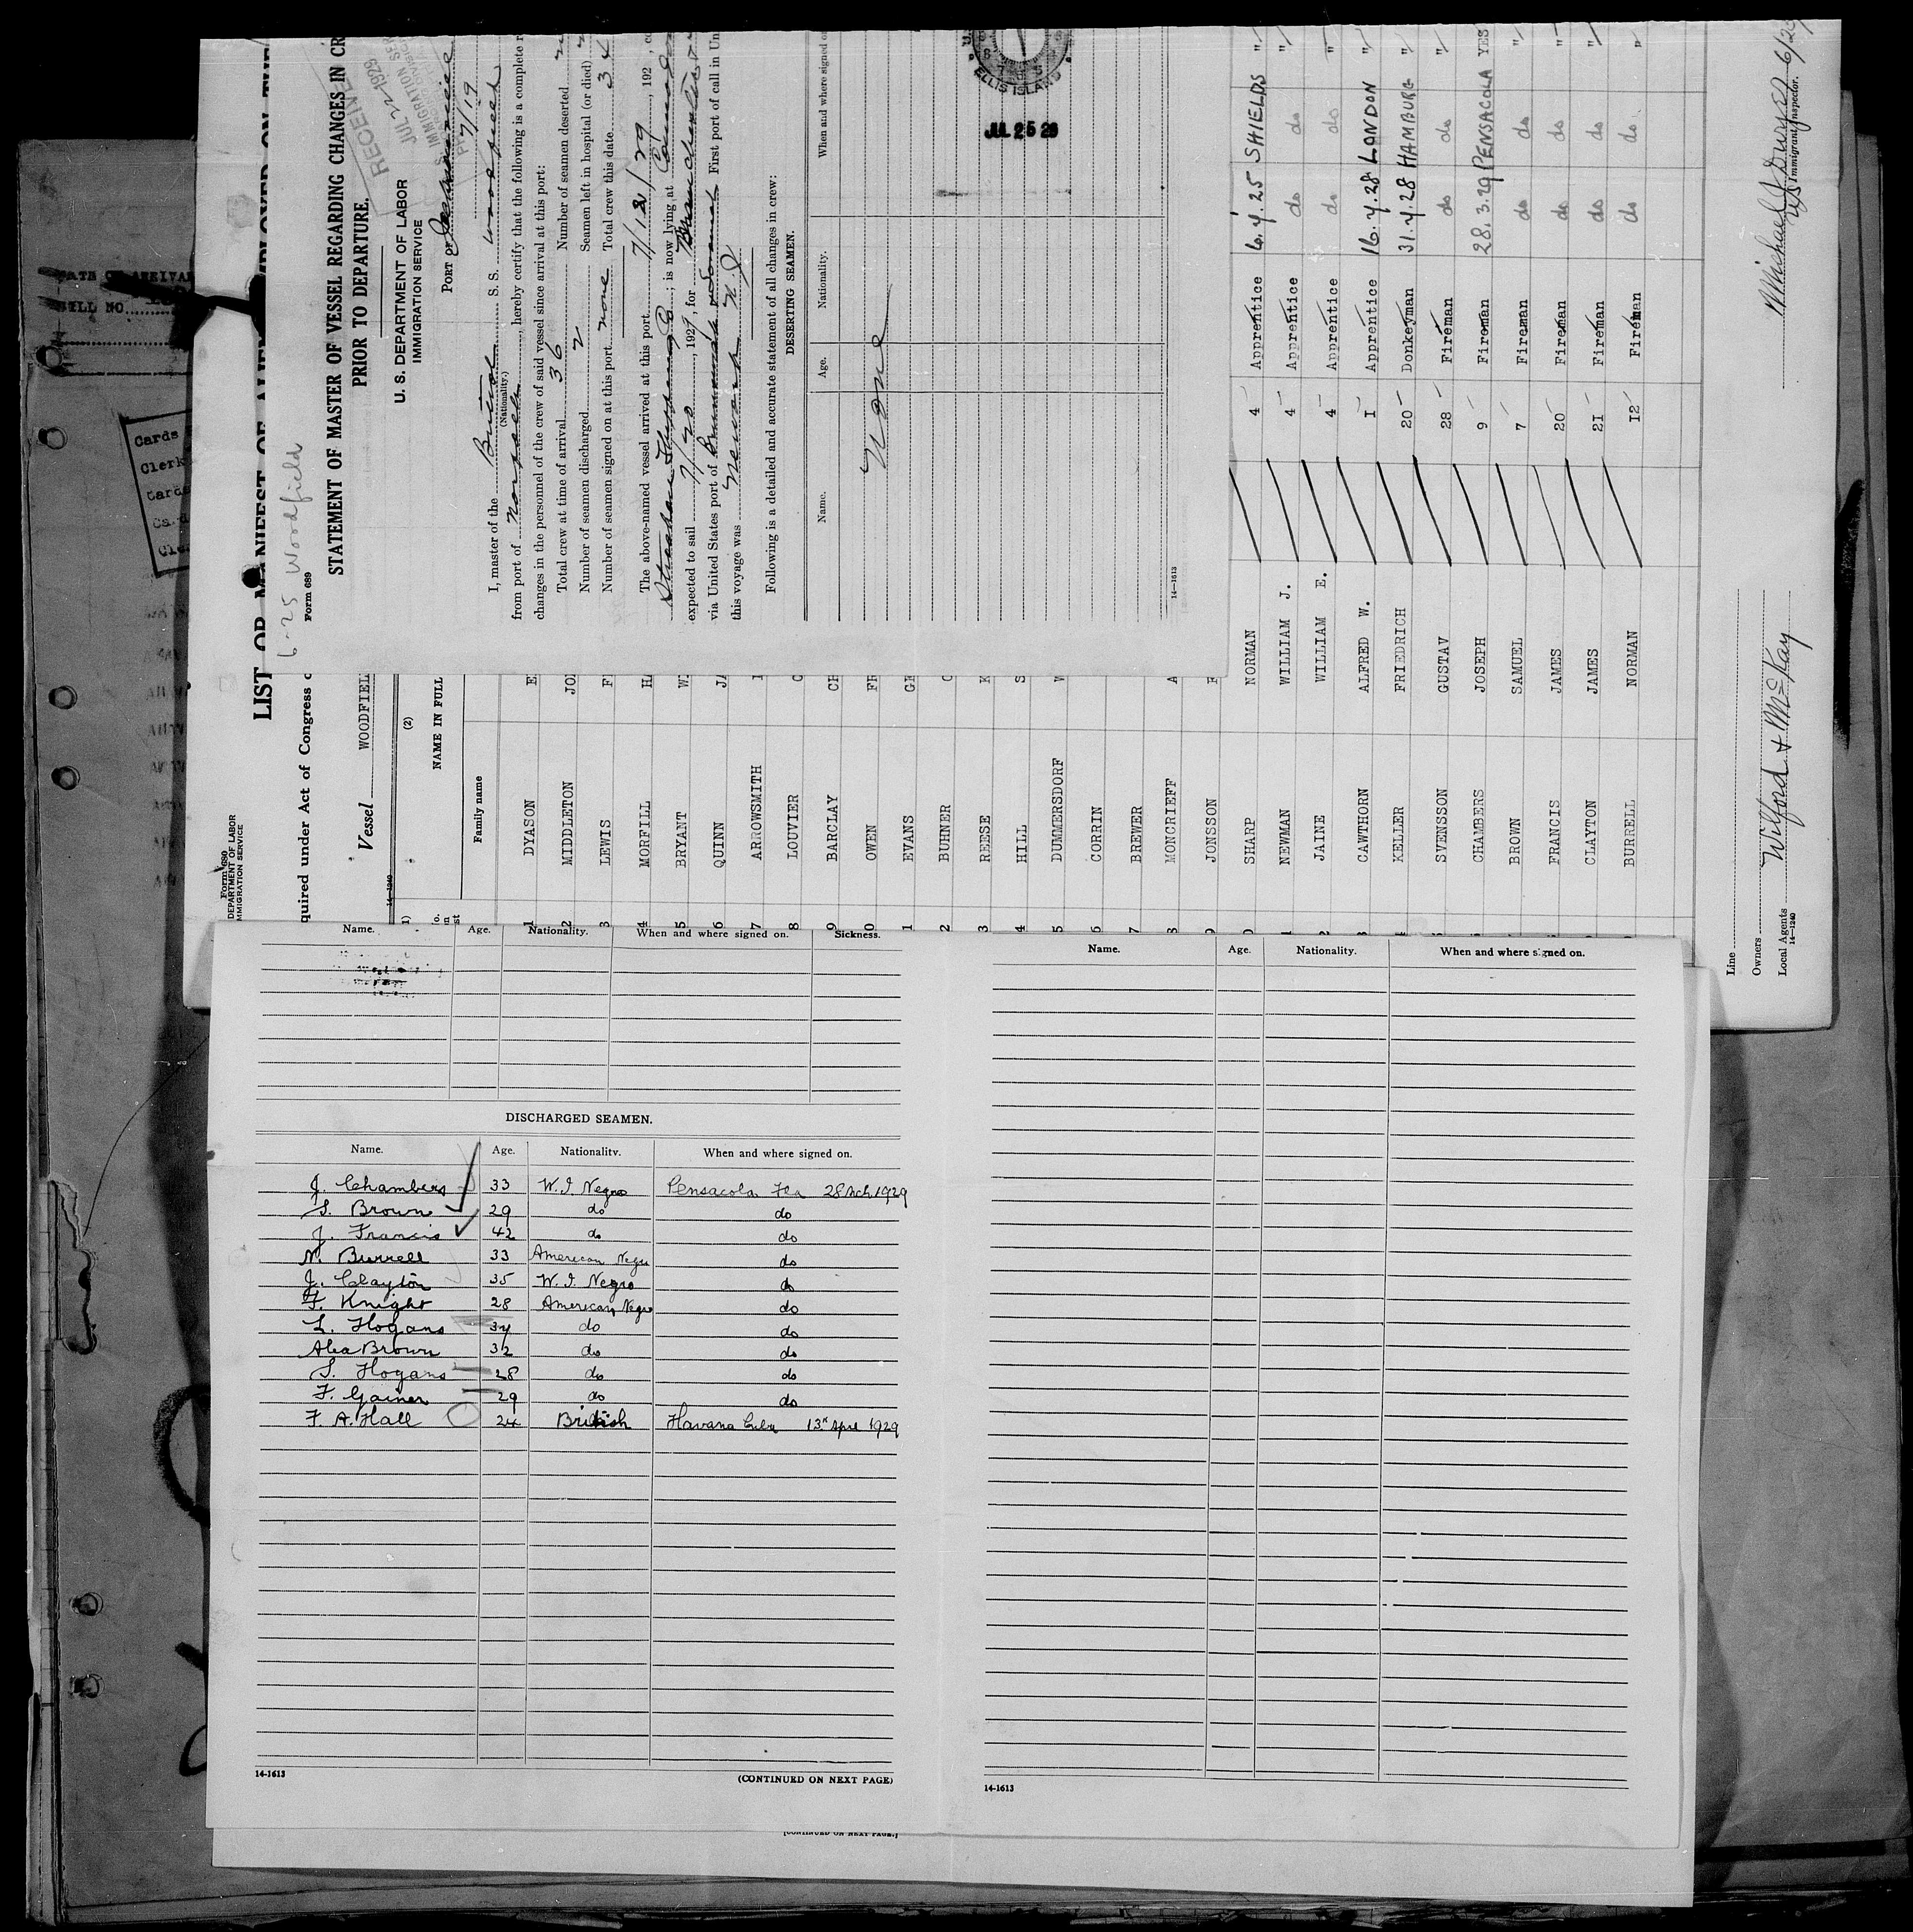 DATE OF ARRIVAL
BILL NO.
Cards
Clerk
Cards
LIST OR MANIFEST OF ALIENS EMPLOYED ON THE
Form 680
DEPARTMENT OF LABOR
IMMIGRATION SERVICE
quired under Act of Congress o
Vessel WOODFIEL
6-25 Woodfield
Form 689
STATEMENT OF MASTER OF VESSEL REGARDING CHANGES IN CR
PRIOR TO DEPARTURE.
U. S. DEPARTMENT OF LABOR
IMMIGRATION SERVICE
RECEIVED
JUL 22 1929
U.S. IMMIGRATION SER
PORT OF
7/19
I, master of the British S. S. Woodfield
(Nationality.)
from port of Norfolk, hereby certify that the following is a complete r
changes in the personnel of the crew of said vessel since arrival at this port:
Total crew at time of arrival 36 Number of seamen deserted
Number of seamen discharged 2 Seamen left in hospital (or died)
Number of seamen signed on at this port none Total crew this date 34
The above-named vessel arrived at this port 7/12/29, 192 , co
, is now lying at
expected to sail 7/20, 1929, for
via United States port of First port of call in Un
this voyage was Newark N.J.
Following is a detailed and accurate statement of all changes in crew:
DESERTING SEAMEN.
Name. Age. Nationality. When and where signed o
None
14—1613
ELLIS ISLAND
JUL 25 29
(2)
NAME IN FULL
Family name
DYASON E
MIDDLETON JO
LEWIS F
MORFILL HA
BRYANT W
QUINN JA
ARROWSMITH
LOUVIER C
BARCLAY CH
OWEN FR
EVANS GR
BUHNER C
REESE K
HILL S
DUMMERSDORF W
CORRIN
BREWER
MONCRIEFF A
JONSSON
SHARP NORMAN 4 Apprentice 6.4.25 SHIELDS "
NEWMAN WILLIAM J. 4 Apprentice do do "
JAINE WILLIAM E. 4 Apprentice do do "
CAWTHORN ALFRED W. 1 Apprentice 16.4.28 LONDON "
KELLER FRIEDRICH 20 Donkeyman 31.4.28 HAMBURG "
SVENSSON GUSTAV 28 Fireman do do "
CHAMBERS JOSEPH 9 Fireman 28.3.29 PENSACOLA YES
BROWN SAMUEL 7 Fireman do do "
FRANCIS JAMES 20 Fireman do do "
CLAYTON JAMES 21 Fireman do do "
BURRELL NORMAN 12 Fireman do do "
Line
Owners
Local Agents Wilford & McKay
14—1240
Immigrant Inspector.
Name. Age. Nationality. When and where signed on. Sickness.
DISCHARGED SEAMEN.
Name. Age. Nationality. When and where signed on.
J. Chambers 33 W.I. Negro Pensacola Fla 28 Mch 1929
S. Brown 29 do do
J. Francis 42 do do
N. Burrell 33 American Negro do
J. Clayton 35 W.I. Negro do
F. Knight 28 American Negro do
L. Hogans 34 do do
Alea Brown 32 do do
S. Hogans 28 do do
F. Gainer 29 do do
F A. Hall 24 British Havana Cuba 13th April 1929
14-1613
(CONTINUED ON NEXT PAGE)
Name. Age. Nationality. When and where signed on.
14-1613
[CONTINUED ON NEXT PAGE.]